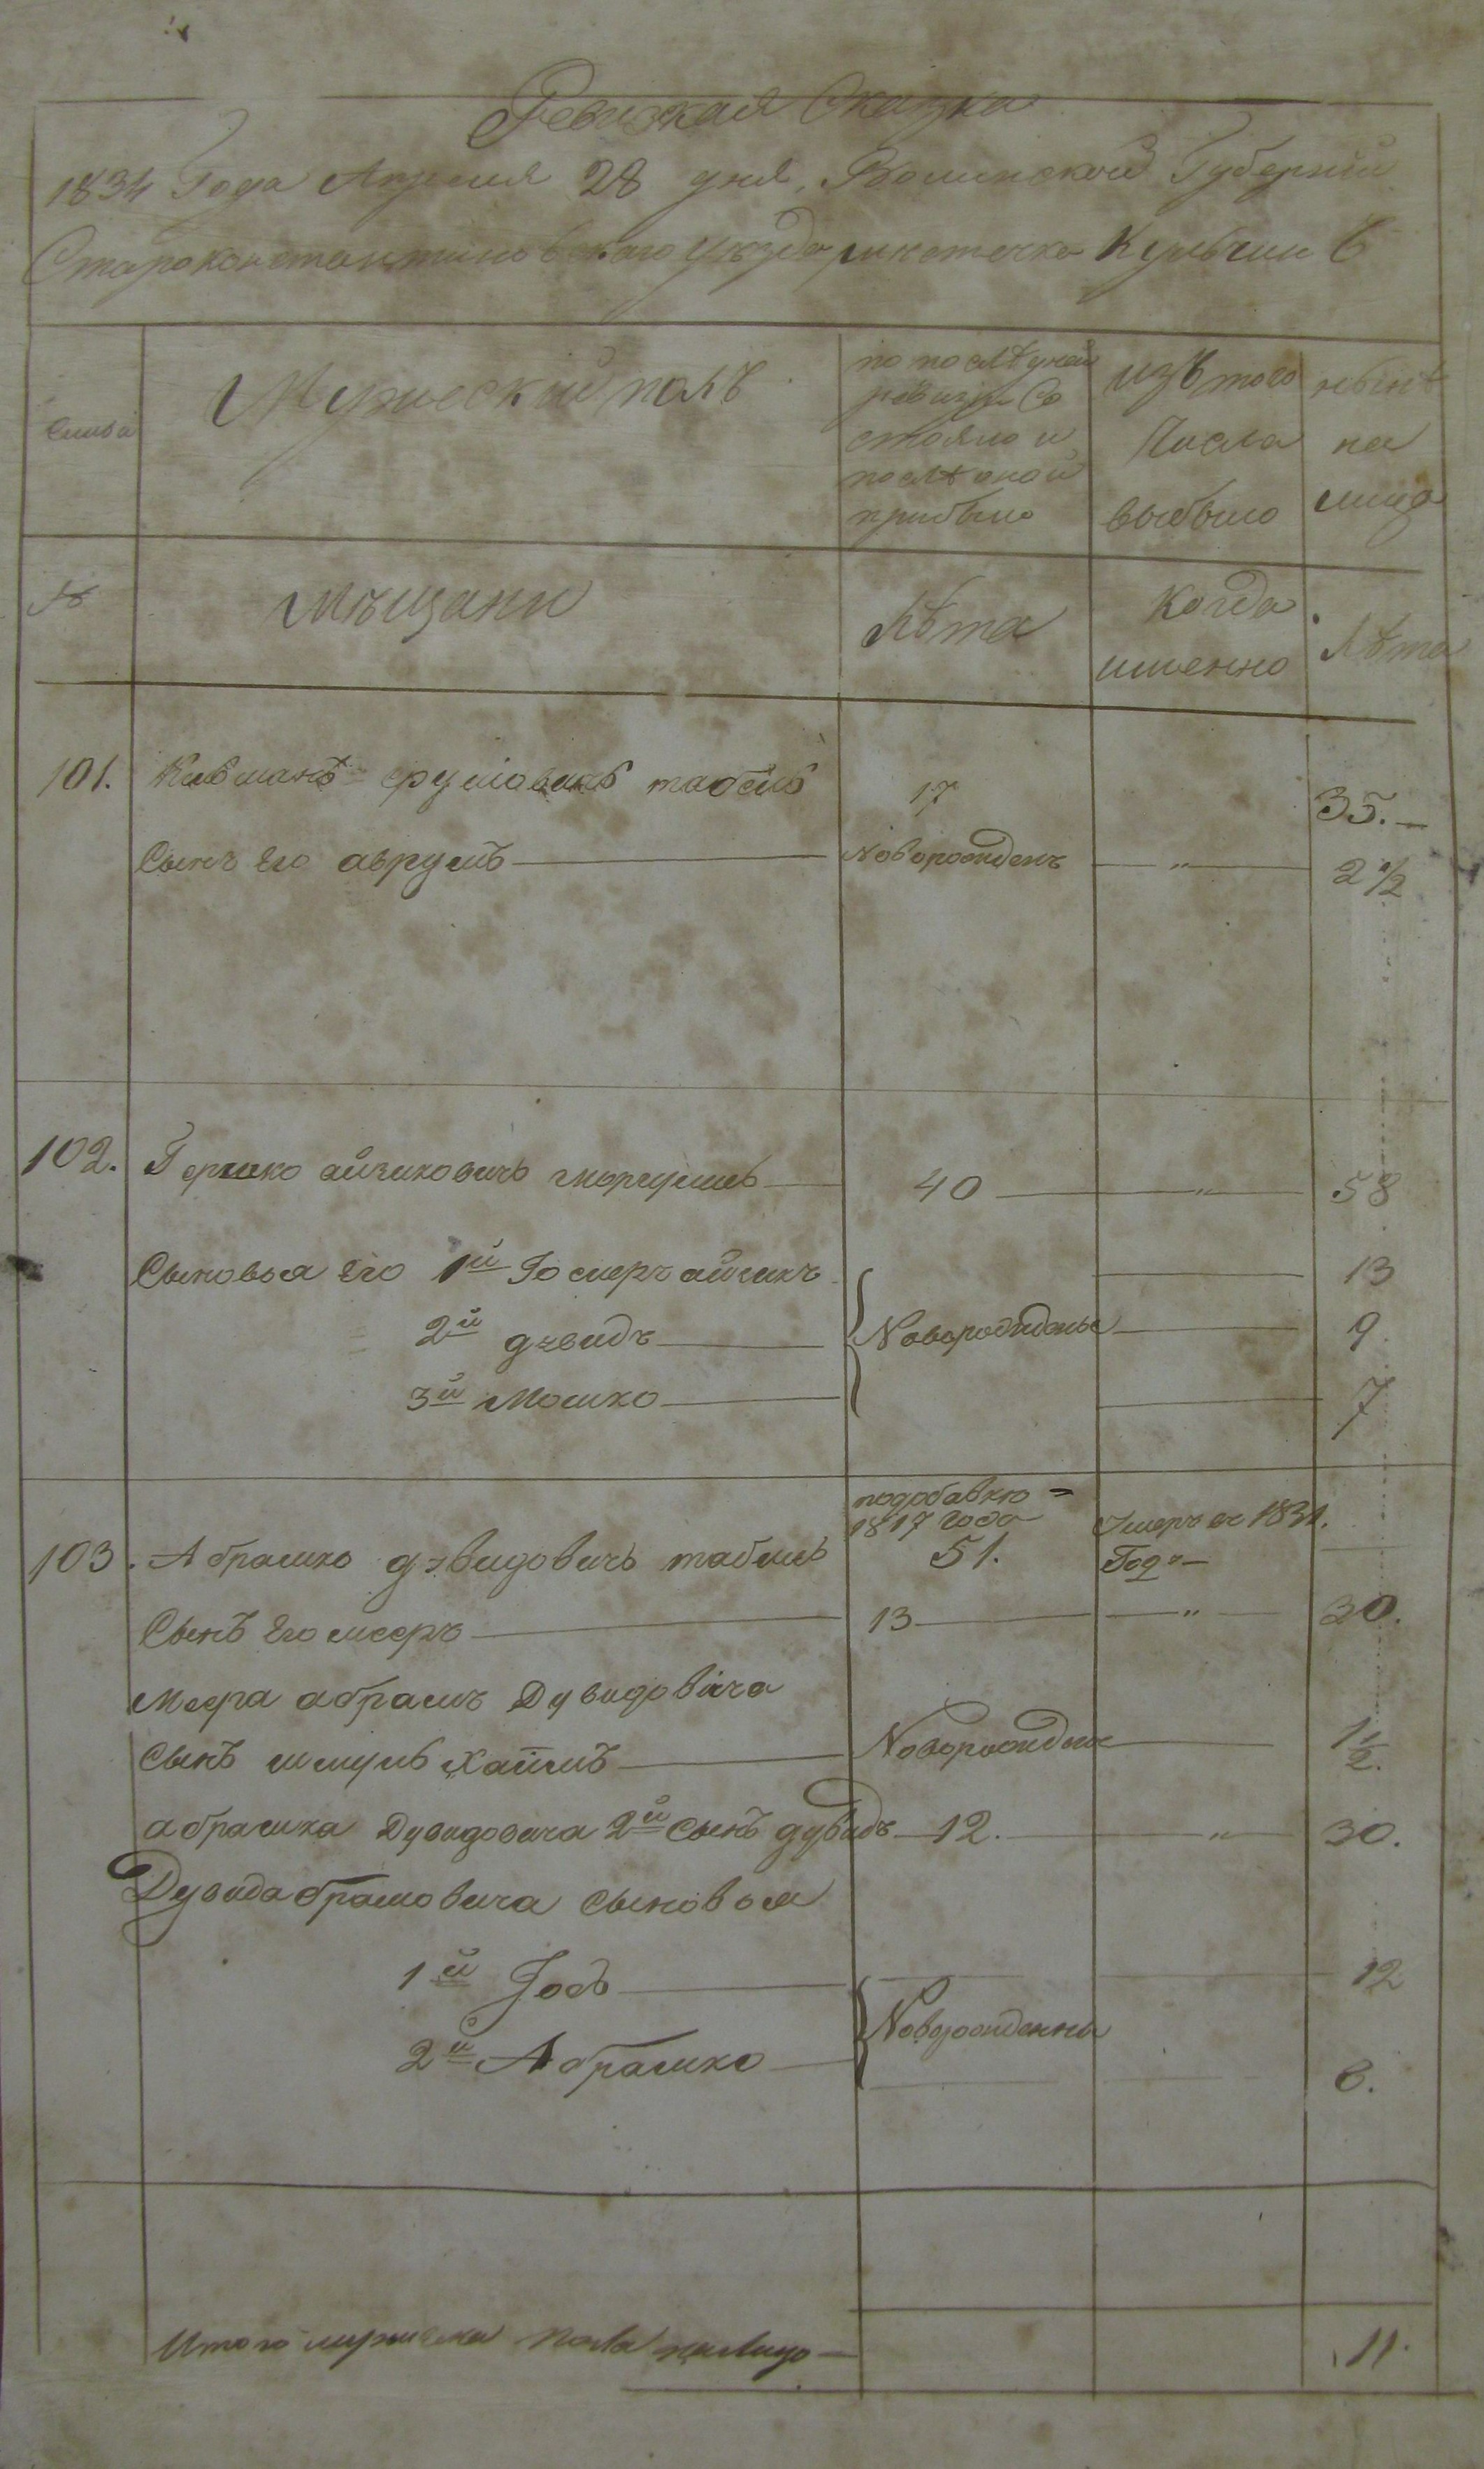 Ревизская Сказка
1834 Года Апреля 28 дня, Волинской Губернии
Староконстантиновского уезда местечка Кульчин Ъ
Семьи
Мужеский полъ
по последней
ревизи Со
стояло и
после оной
прибыло
изъ того
Числа
выбыло
нынѣ
на
лицо
№
Мѣщани
Лѣта
Когда
именно
Лѣта
101. сруловичъ табель 17 35.
Сынъ Его аврумъ Новорожденъ " 2 1/2
102. Гершко айзиковичъ 40 " 58
Сыновья Его 1й айзикъ 13
2й дувидъ Новорожденые 9
3й Мошко 7
подобавкю
1817 года
103. Абрамко дувидовичъ табель 51. Умеръ въ 1831. Года
Сынъ Его мееръ 13 " 30.
Меера абрамъ Дувидовича
Сынъ шмуль хаимъ Новорожденые 1 1/2.
абрамка Дувидовича 2й Сынъ дувидъ 12. " 30.
Дувида абрамовича Сыновья
1й Іосъ 12
Новорожденны
2й Абрамко 6.
Итого мужеска пола налицо 11.